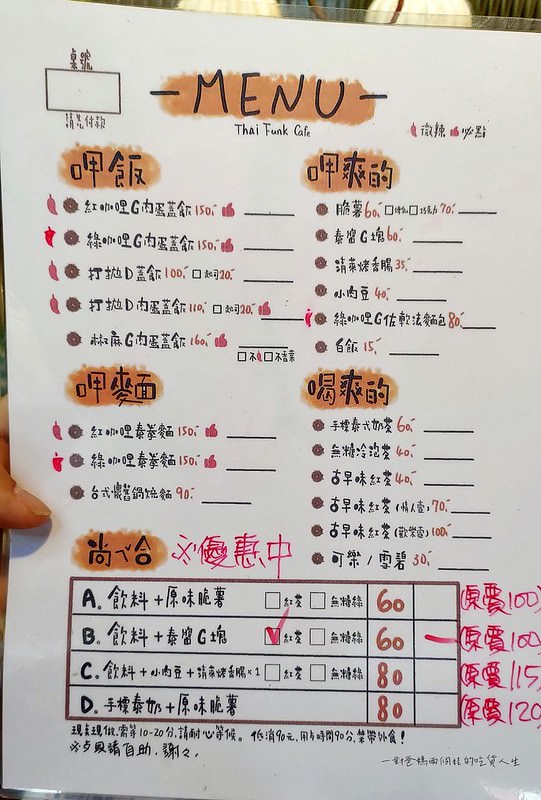 桌號
請先付款
-MENU-
Thai Funk Cafe
微辣 必點
呷飯
紅咖哩G肉蛋蓋飯 150.-
綠咖哩G肉蛋蓋飯 150.-
打拋D蓋飯 100.- □起司20.-
打拋D肉蛋蓋飯 110.- □起司20.-
椒麻G肉蛋蓋飯 160.-
□不 □不香菜
呷麵
紅咖哩泰拳麵 150.-
綠咖哩泰拳麵 150.-
台式懷舊鍋燒麵 90.-
呷爽的
脆薯 60.- □ □巧克力 70.-
泰窩G塊 60.-
清萊烤香腸 35.-
小肉豆 40.-
綠咖哩G佐軟法麵包 80.-
白飯 15.-
喝爽的
手標泰式奶茶 60.-
無糖冷泡茶 40.-
古早味紅茶 40.-
古早味紅茶(情人壺) 70.-
古早味紅茶(歡聚壺) 100.-
可樂/雪碧 30.-
尚ㄟ合 ※優惠中
A. 飲料+原味脆薯 □紅茶 □無糖綠 60 (原價100)
B. 飲料+泰窩G塊 □紅茶 □無糖綠 60 (原價100
C. 飲料+小肉豆+清萊烤香腸×1 □紅茶 □無糖綠 80 (原價115)
D. 手標泰奶+原味脆薯 80 (原價120
現點現做,需等10-20分,請耐心等候。 低消90元,用餐時間90分,禁帶外食!
※夕貝請自助,謝々,
一對爸媽兩個娃的吃貨人生